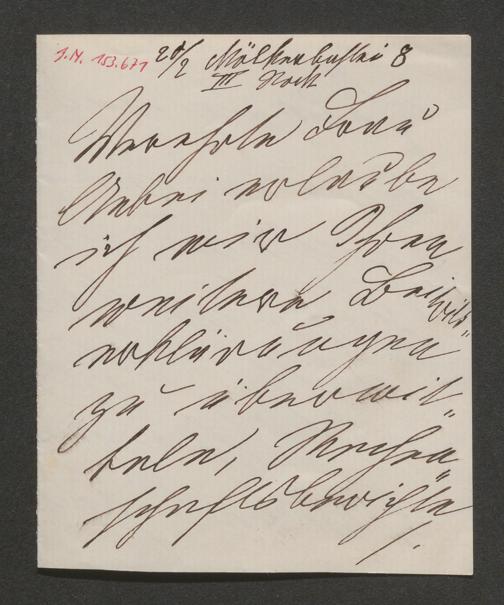 J.N. 153.671
20/2 Mölkerbastei 8
III Stock
Verehrte Frau
Anbei erlaube
ich mir Ihnen
weitere Beitritts-
erklärungen
zu übermit-
teln, Rechen-
schaftsberichte